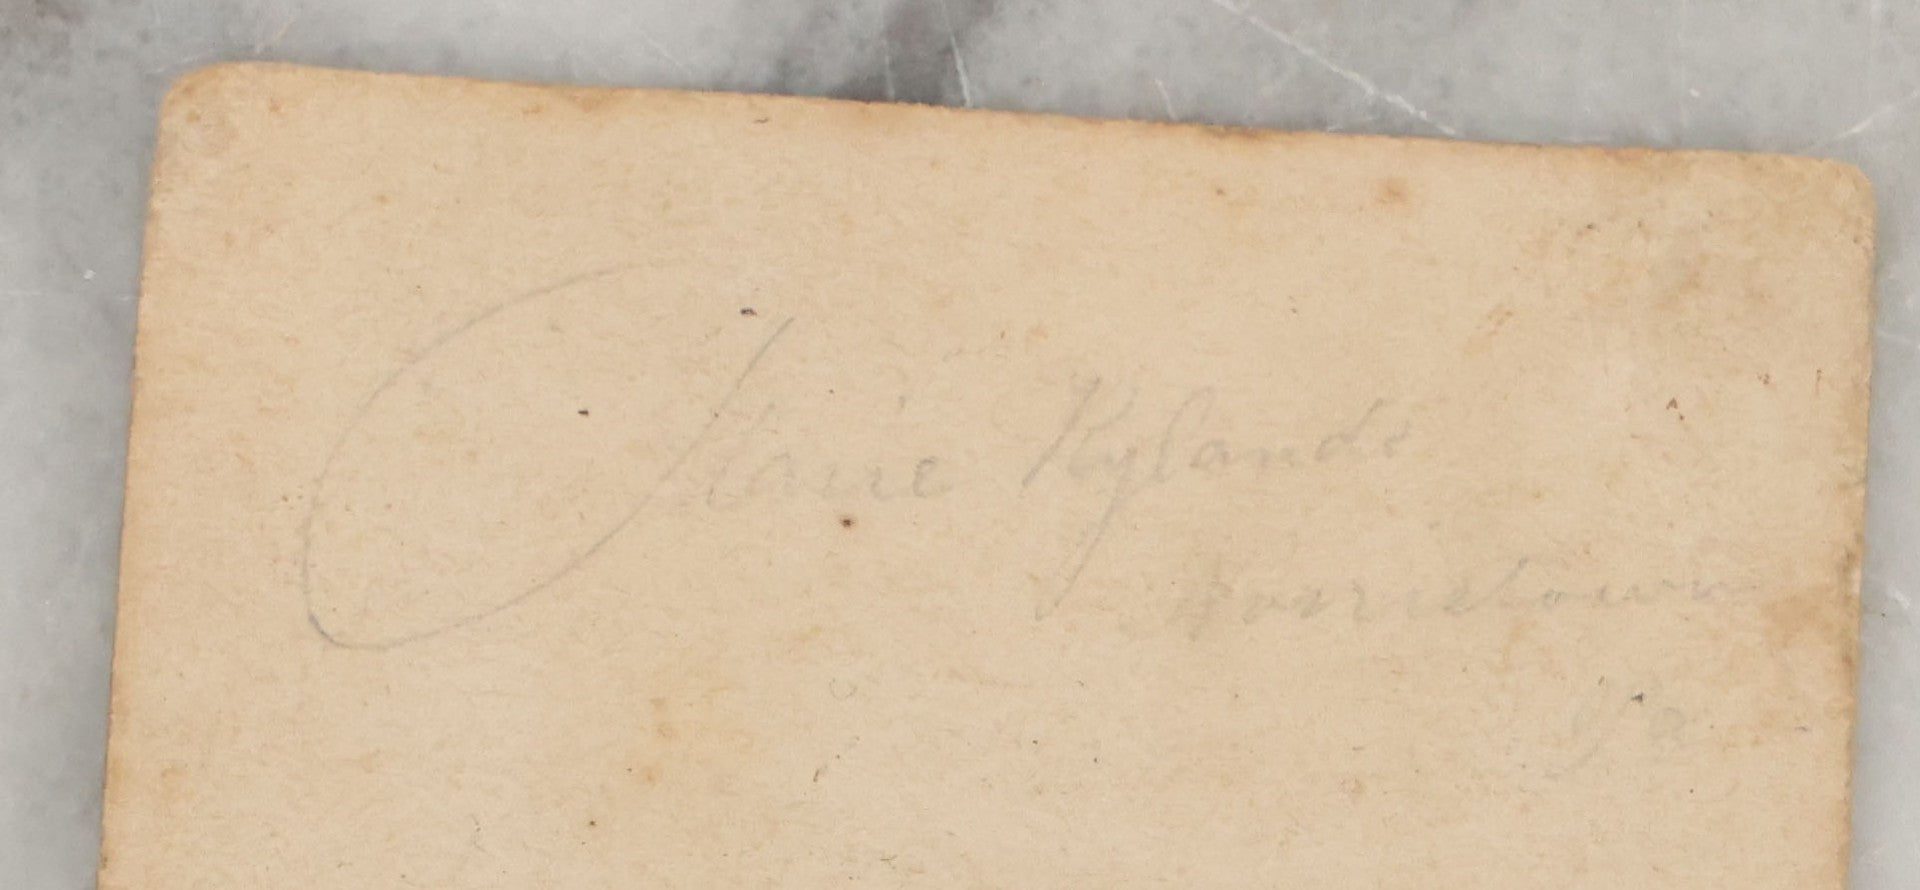 Claire Rylands
Norristown
Pa